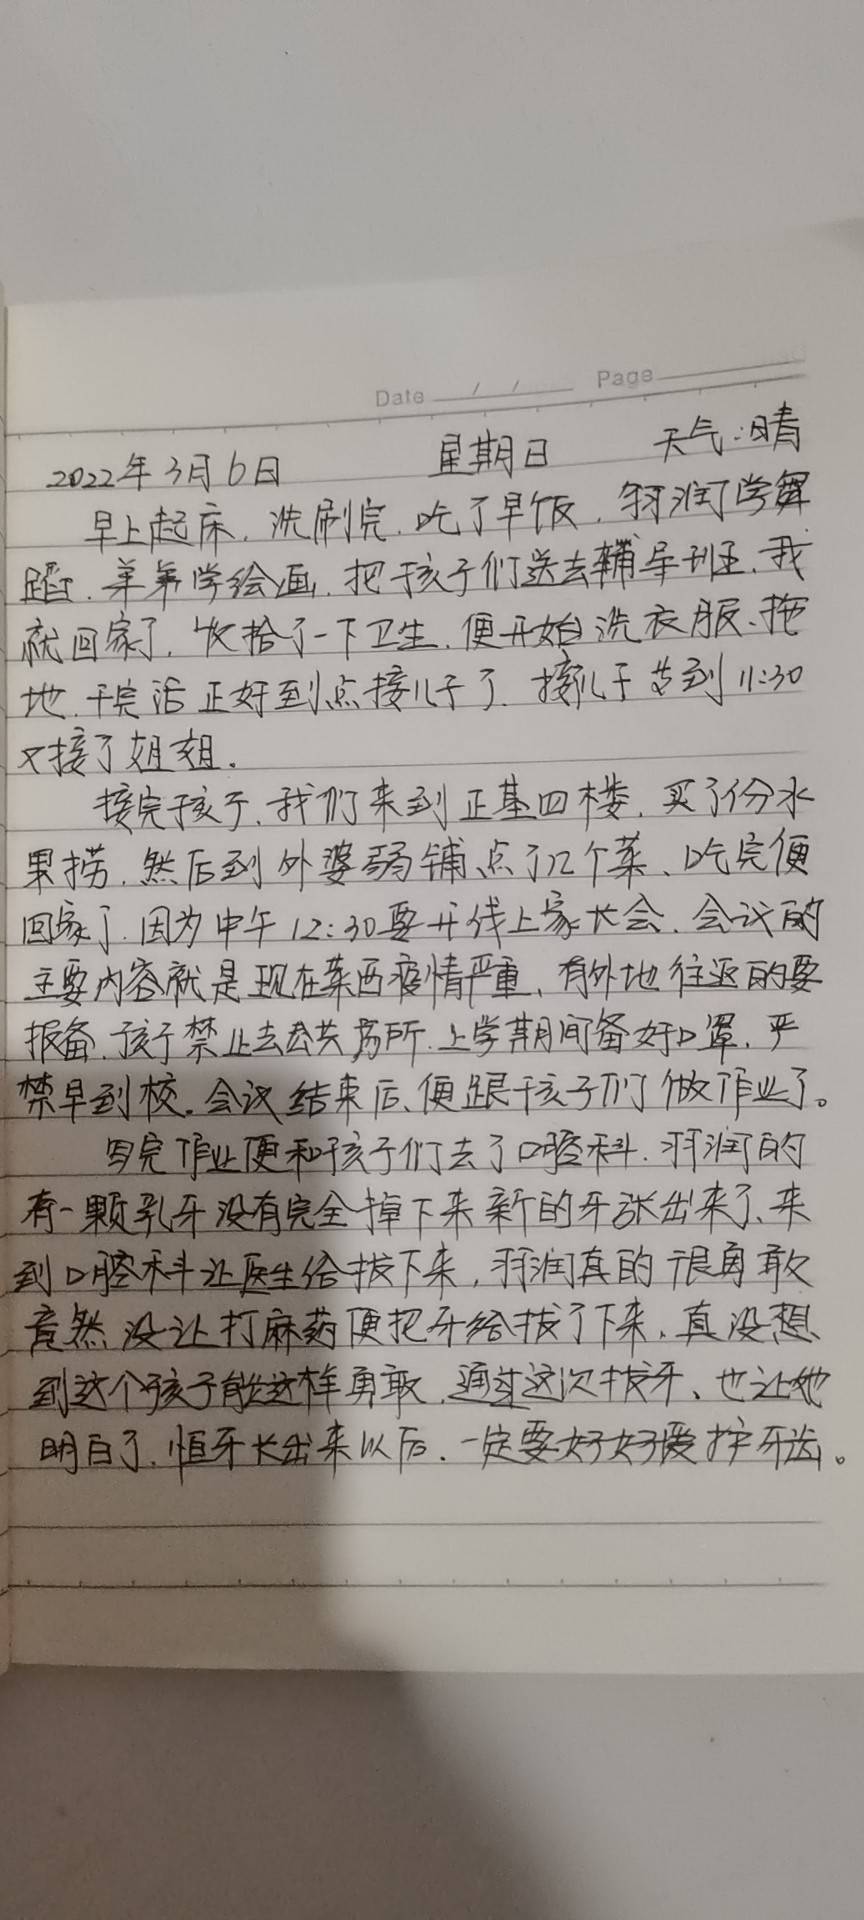 Date / / Page
2022年3月6日 星期日 天气:晴
早上起床,洗刷完,吃了早饭,羽润学舞
蹈,弟弟学绘画,把孩子们送去辅导班,我
就回家了,收拾了一下卫生,便开始洗衣服、拖
地,干完活正好到点接儿子了,接儿子等到11:30
又接了姐姐。
接完孩子,我们来到正基四楼,买了份水
果捞,然后到外婆弱铺点了几个菜、吃完便
回家了,因为中午12:30要开线上家长会,会议的
主要内容就是现在莱西疫情严重,有外地往返的要
报备,孩子禁止去公共场所,上学期间备好口罩,严
禁早到校。会议结束后,便跟孩子们做作业了。
写完作业便和孩子们去了口腔科,羽润的
有一颗乳牙没有完全掉下来新的牙张出来了、来
到口腔科让医生给拔下来,羽润真的很勇敢
竟然没让打麻药便把牙给拔了下来,真没想
到这个孩子能这样勇敢,通过这次拔牙、也让她
明白了,恒牙长出来以后,一定要好好爱护牙齿。